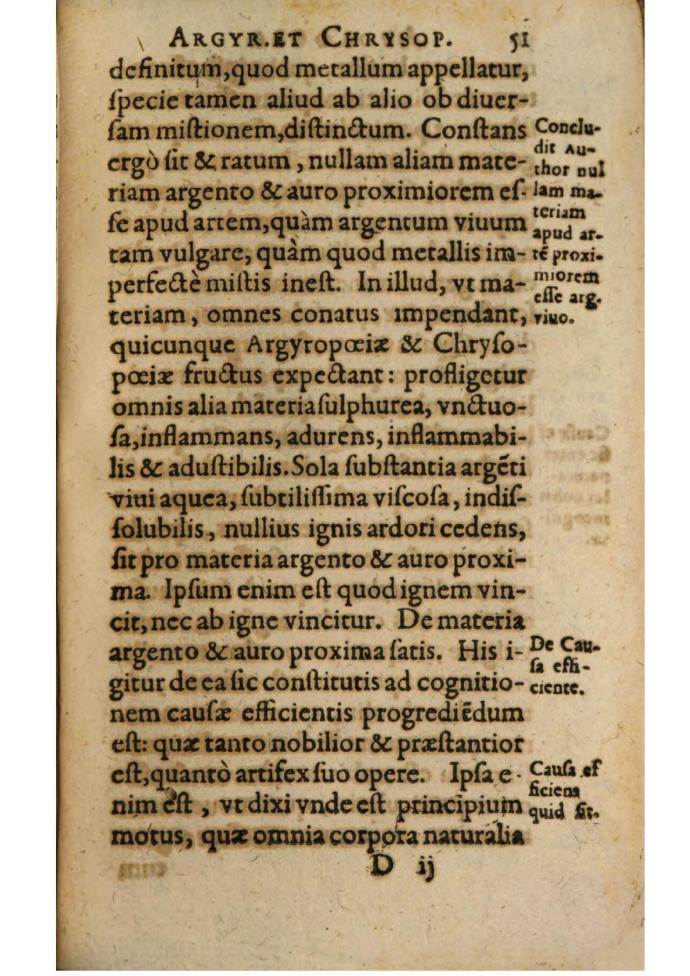 ARGYR. ET CHRYSOP. 51
definitum, quod metallum appellatur,
ſpecie tamen aliud ab alio ob diuer-
ſam miſtionem, diſtinctum. Conſtans
ergò ſit & ratum, nullam aliam mate-
riam argento & auro proximiorem eſ-
ſe apud artem, quàm argentum viuum
tam vulgare, quàm quod metallis im-
perfectè miſtis ineſt. In illud, vt ma-
teriam, omnes conatus impendant,
quicunque Argyropœiæ & Chryſo-
pœiæ fructus expectant: profligetur
omnis alia materia ſulphurea, vnctuo-
ſa, inflammans, adurens, inflammabi-
lis & aduſtibilis. Sola ſubſtantia argẽti
viui aquea, ſubtiliſſima viſcoſa, indiſ-
ſolubilis, nullius ignis ardori cedens,
ſit pro materia argento & auro proxi-
ma. Ipſum enim eſt quod ignem vin-
cit, nec ab igne vincitur. De materia
argento & auro proxima ſatis. His i-
gitur de ea ſic conſtitutis ad cognitio-
nem cauſæ efficientis progrediẽdum
eſt: quæ tanto nobilior & præſtantior
eſt, quantò artifex ſuo opere. Ipſa e-
nim eſt, vt dixi vnde eſt principium
motus, quæ omnia corpora naturalia
D ij
Conclu-
dit Au-
thor nul
lam ma-
teriam
apud ar-
tẽ proxi-
miorem
eſſe arg.
viuo.
De Cau-
ſa effi-
ciente.
Cauſa ef
ficiens
quid ſit.